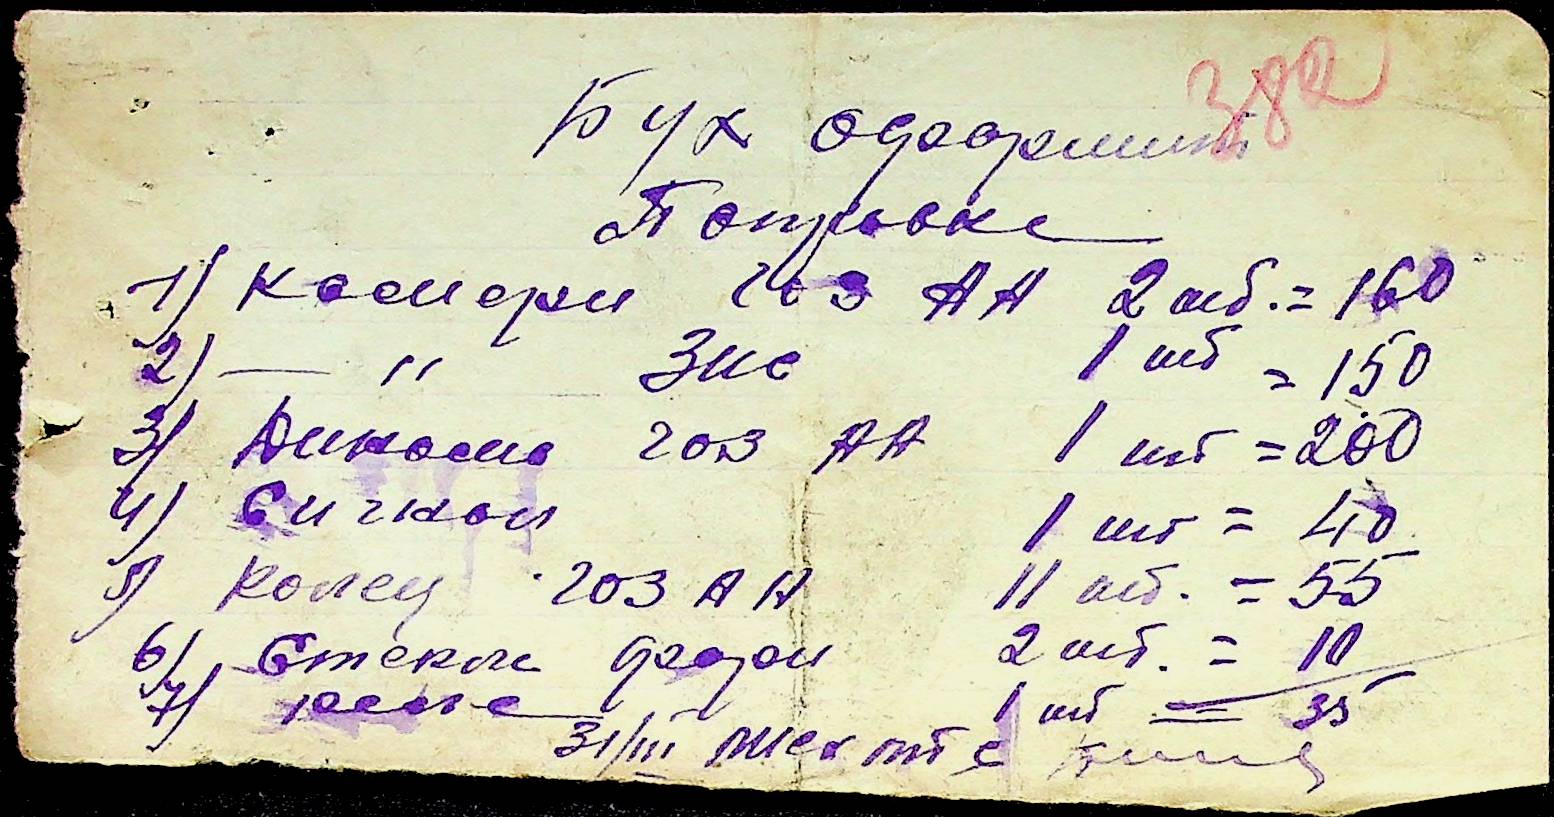 382
Бух оформит
1) Камери газ АА 2 шт. = 160
2) — " Зис 1 шт = 150
3) Динамо газ АА 1 шт = 200
4) Сигнал 1 шт = 40
5) Колец газ АА 11 шт. = 55
6) Стекол фари 2 шт. = 10
7) реле 1 шт = 35
31/III